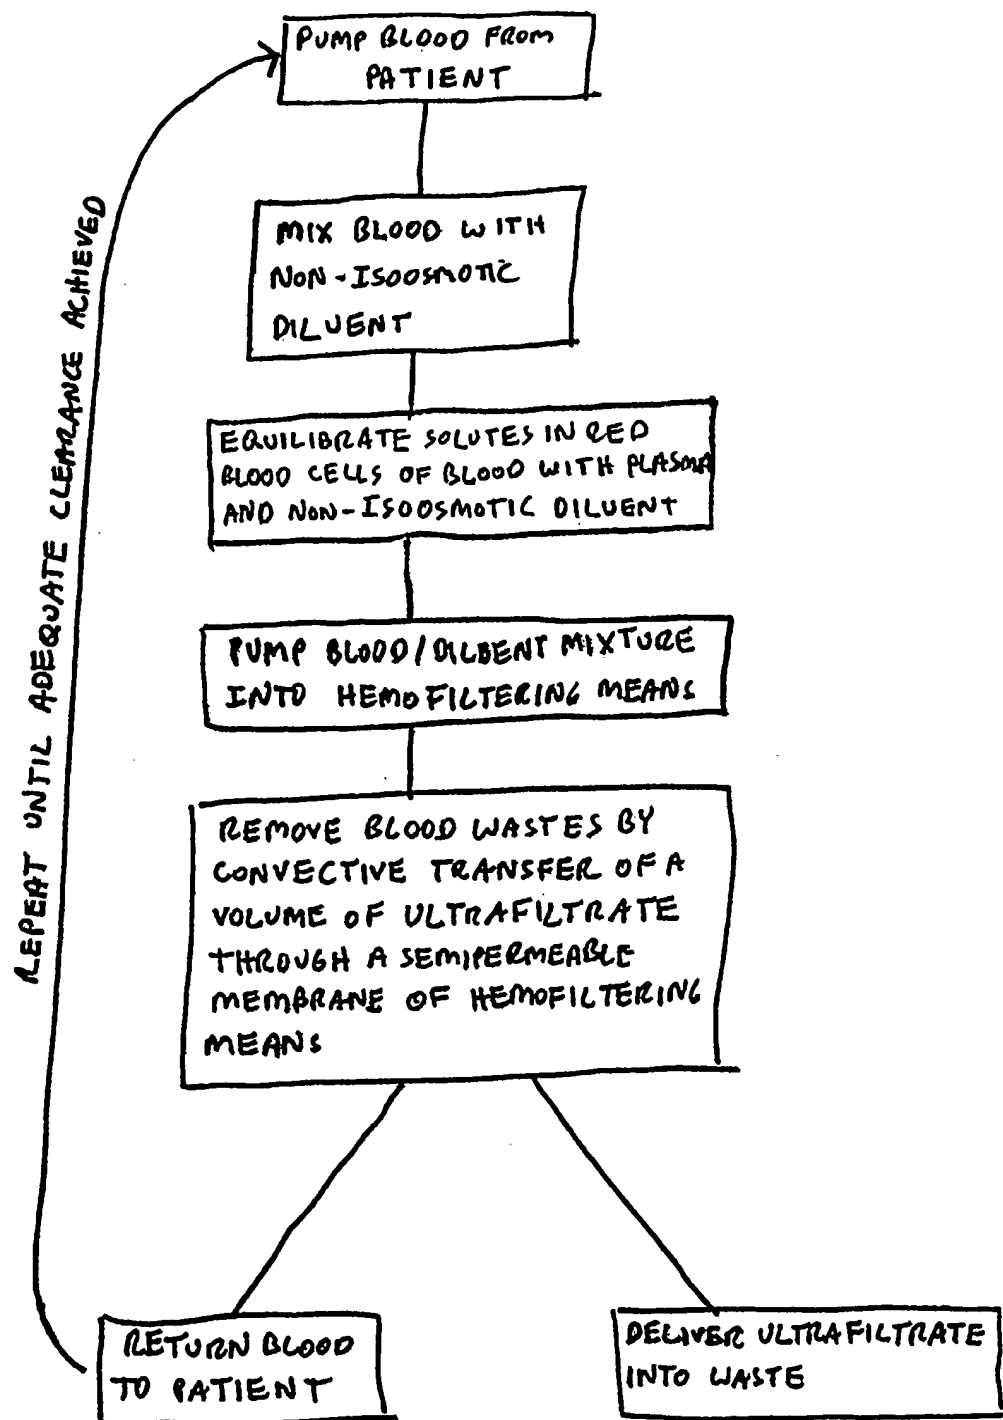 PUMP BLOOD FROM
PATIENT
MIX BLOOD WITH
NON-ISOOSMOTIC
DILUENT
EQUILIBRATE SOLUTES IN RED
BLOOD CELLS OF BLOOD WITH PLASMA
AND NON-ISOOSMOTIC DILUENT
PUMP BLOOD/DILBENT MIXTURE
INTO HEMOFILTERING MEANS
REMOVE BLOOD WASTES BY
CONVECTIVE TRANSFER OF A
VOLUME OF ULTRAFILTRATE
THROUGH A SEMIPERMEABLE
MEMBRANE OF HEMOFILTERING
MEANS
RETURN BLOOD
TO PATIENT
DELIVER ULTRAFILTRATE
INTO WASTE
REPEAT UNTIL ADEQUATE CLEARANCE ACHIEVED